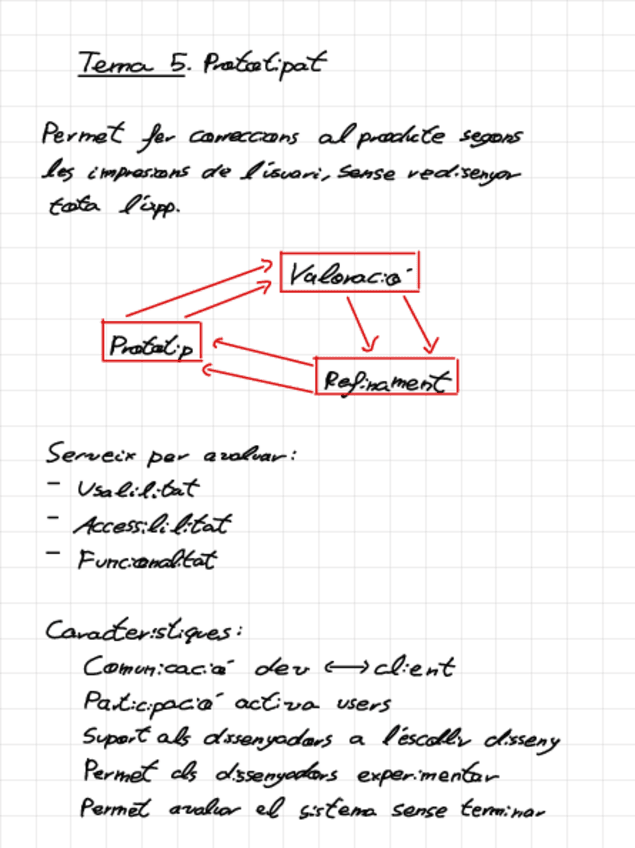 Tema 5. Prototipat
Permet fer correccions al producte segons
les impresions de l'usuari, sense redisenyar
tota l'app.
Valoració
Prototip
Refinament
Serveix per avaluar:
- Usabilitat
- Accessibilitat
- Funcionalitat
Característiques:
Comunicació dev <-> client
Participació activa users
Suport als dissenyadors a l'escollir disseny
Permet als dissenyadors experimentar
Permet avaluar el sistema sense terminar